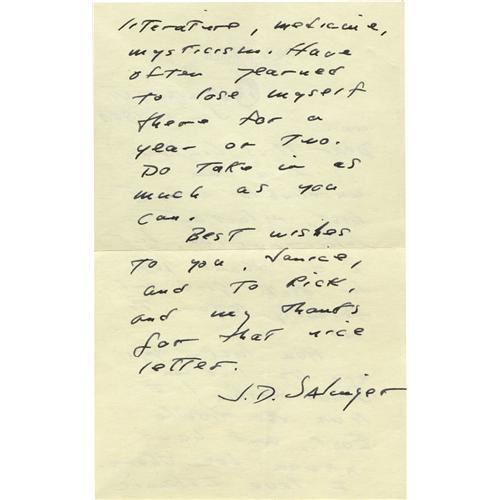 literature, medicine,
mysticism. Have
often yearned
to lose myself
there for a
year or two.
Do take in as
much as you
can.
Best wishes
to you, Janice,
and to Rick,
and my thanks
for that nice
letter.
J.D. Salinger